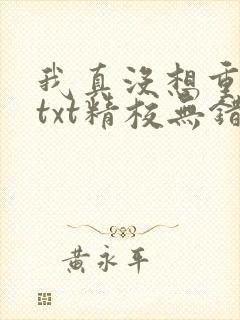 我真沒想重
txt精校無錯
黃永平